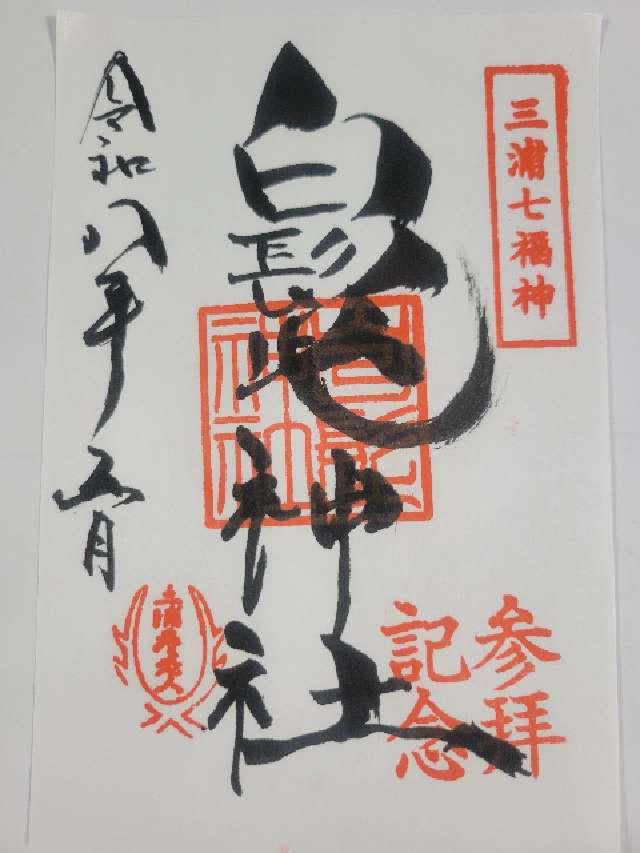 三浦七福神
白髭神社
参拝
記念
令和八年五月